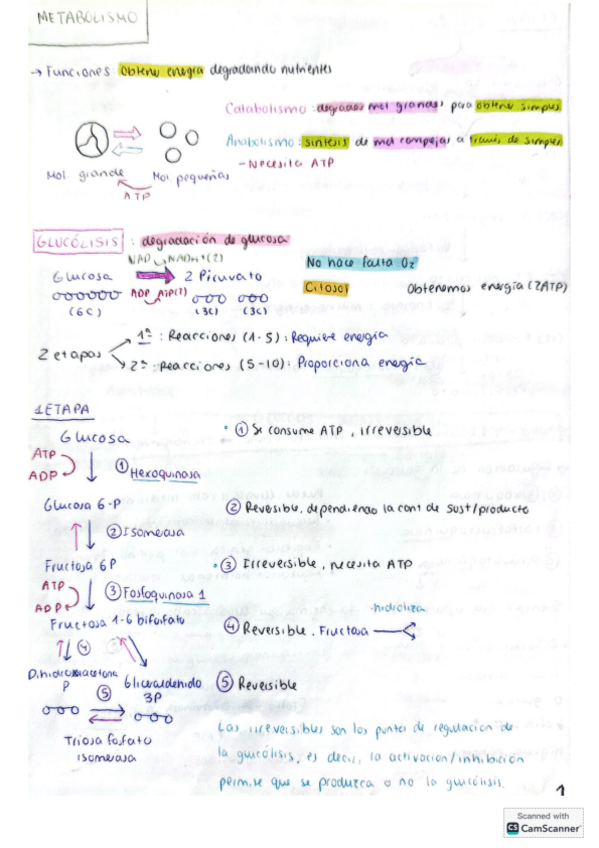 METABOLISMO
→ Funciones: obtener energía degradando nutrientes
Catabolismo: degrados mol grandes para obtener simples
Anabolismo: síntesis de mol complejas a través de simples
- Necesita ATP
Mol. grande
Mol pequeñas
ATP
GLUCÓLISIS : degradación de glucosa
NAD NADH+(2)
No hace falta O2
Glucosa
2 Piruvato
ADP ATP(2)
Citosol
Obtenemos energía (2ATP)
(6C)
(3C)
(3C)
2 etapas
1ª : Reacciones (1-5): Requiere energía
2ª : Reacciones (5-10): Proporciona energía
1ETAPA
Glucosa
① Se consume ATP, irreversible
ATP
ADP
① Hexoquinasa
Glucosa 6-P
② Reversible, dependiendo la cant de sust/producto
② Isomeasa
Fructosa 6P
③ Irreversible, necesita ATP
ATP
ADP
③ Fosfoquinasa 1
hidroliza
Fructosa 1-6 bifosfato
④ Reversible. Fructosa
④
Dihidroxiacetona P
Gliceraldehido 3P
⑤
⑤ Reversible
Triosa fosfato
isomeasa
Las irreversibles son los puntos de regulación de
la glucólisis, es decir, la activación/inhibición
permite que se produzca o no la glucólisis.
1
Scanned with
CS CamScanner